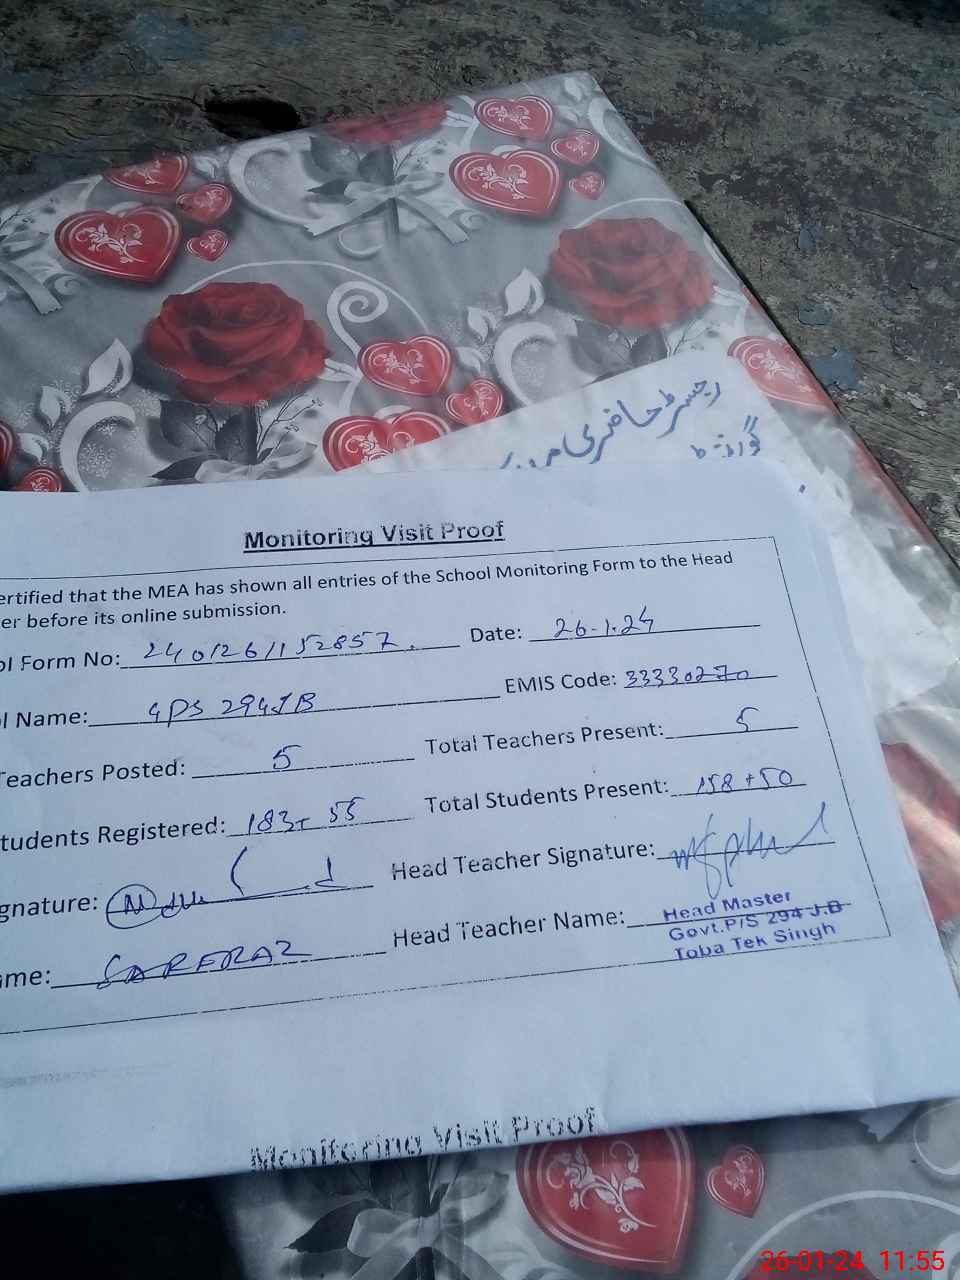 رجسٹر حاضری
گورنمنٹ
Monitoring Visit Proof
ertified that the MEA has shown all entries of the School Monitoring Form to the Head
er before its online submission.
ol Form No: 2401261152857. Date: 26-1-24
l Name: GPS 294JB EMIS Code: 33330270
Teachers Posted: 5 Total Teachers Present: 5
tudents Registered: 183+55 Total Students Present: 158+50
gnature: Head Teacher Signature:
ame: SARFRAZ Head Teacher Name: Head Master
Govt.P/S 294 J.B
Toba Tek Singh
Monitoring Visit Proof
26-01-24 11:55